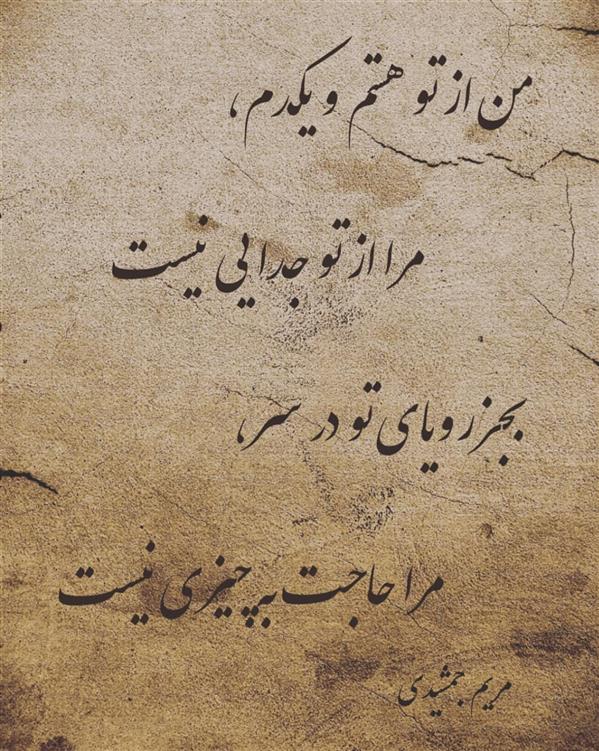 من از تو هستم و یکدم،
مرا از تو جدایی نیست
بجز رویای تو در سر،
مرا حاجت به چیزی نیست
مریم جمشیدی